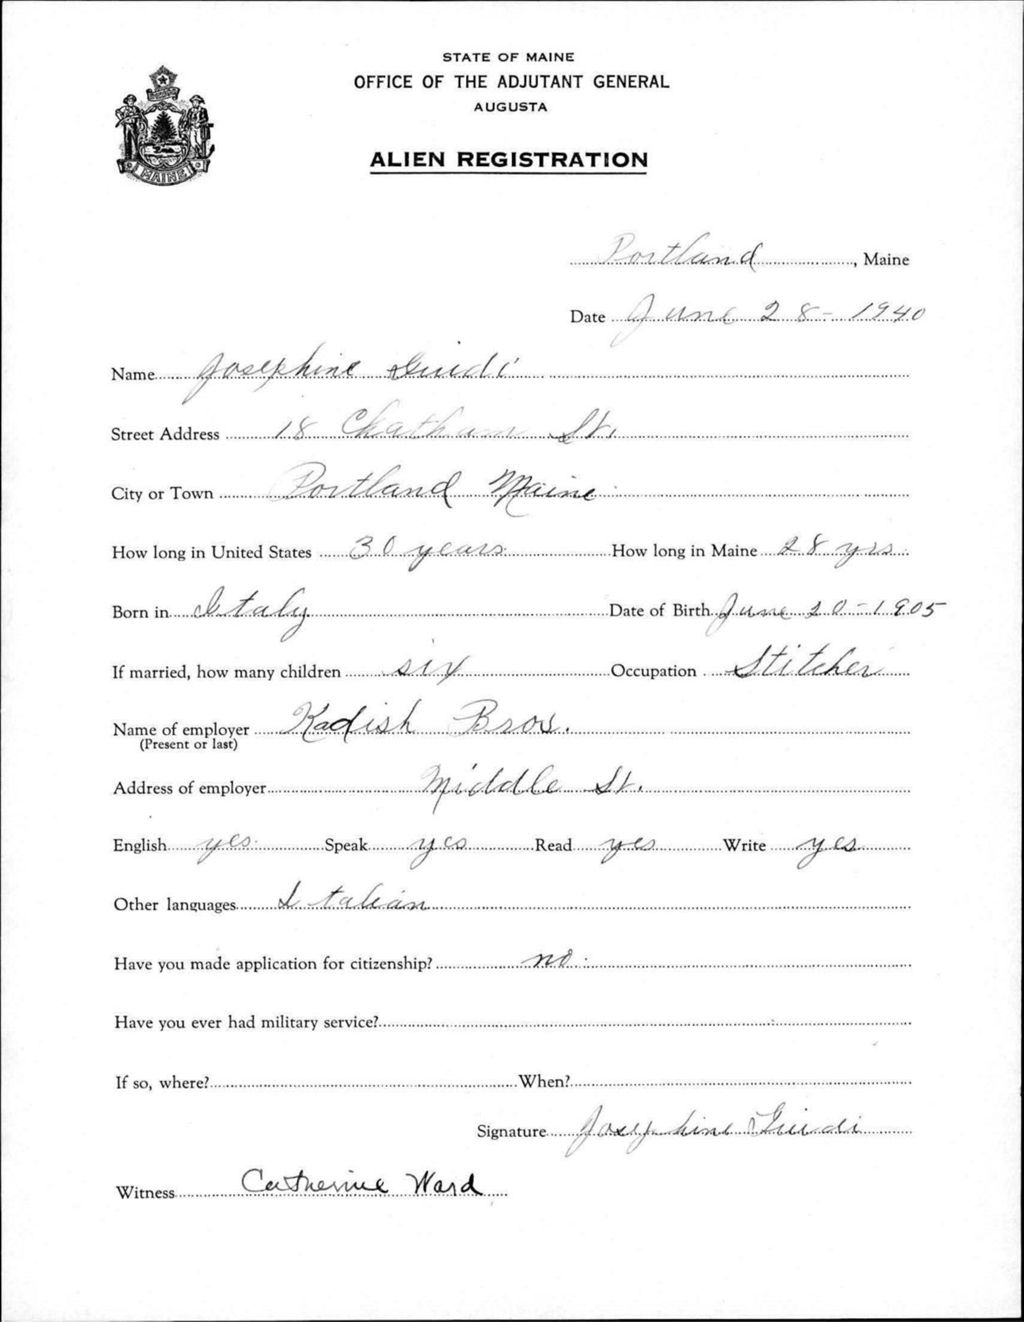 STATE OF MAINE
OFFICE OF THE ADJUTANT GENERAL
AUGUSTA
ALIEN REGISTRATION
MAINE
Portland, Maine
Date June 28-1940
Name Josephine Guidi
Street Address 18 Chatham St.
City or Town Portland Maine
How long in United States 30 years How long in Maine 28 yrs.
Born in Italy Date of Birth June 20-1905
If married, how many children six Occupation Stitcher
Name of employer Kadish Bros.
(Present or last)
Address of employer Middle St.
English yes Speak yes Read yes Write yes
Other languages Italian
Have you made application for citizenship? no
Have you ever had military service?
If so, where? When?
Signature Josephine Guidi
Witness Catherine Ward